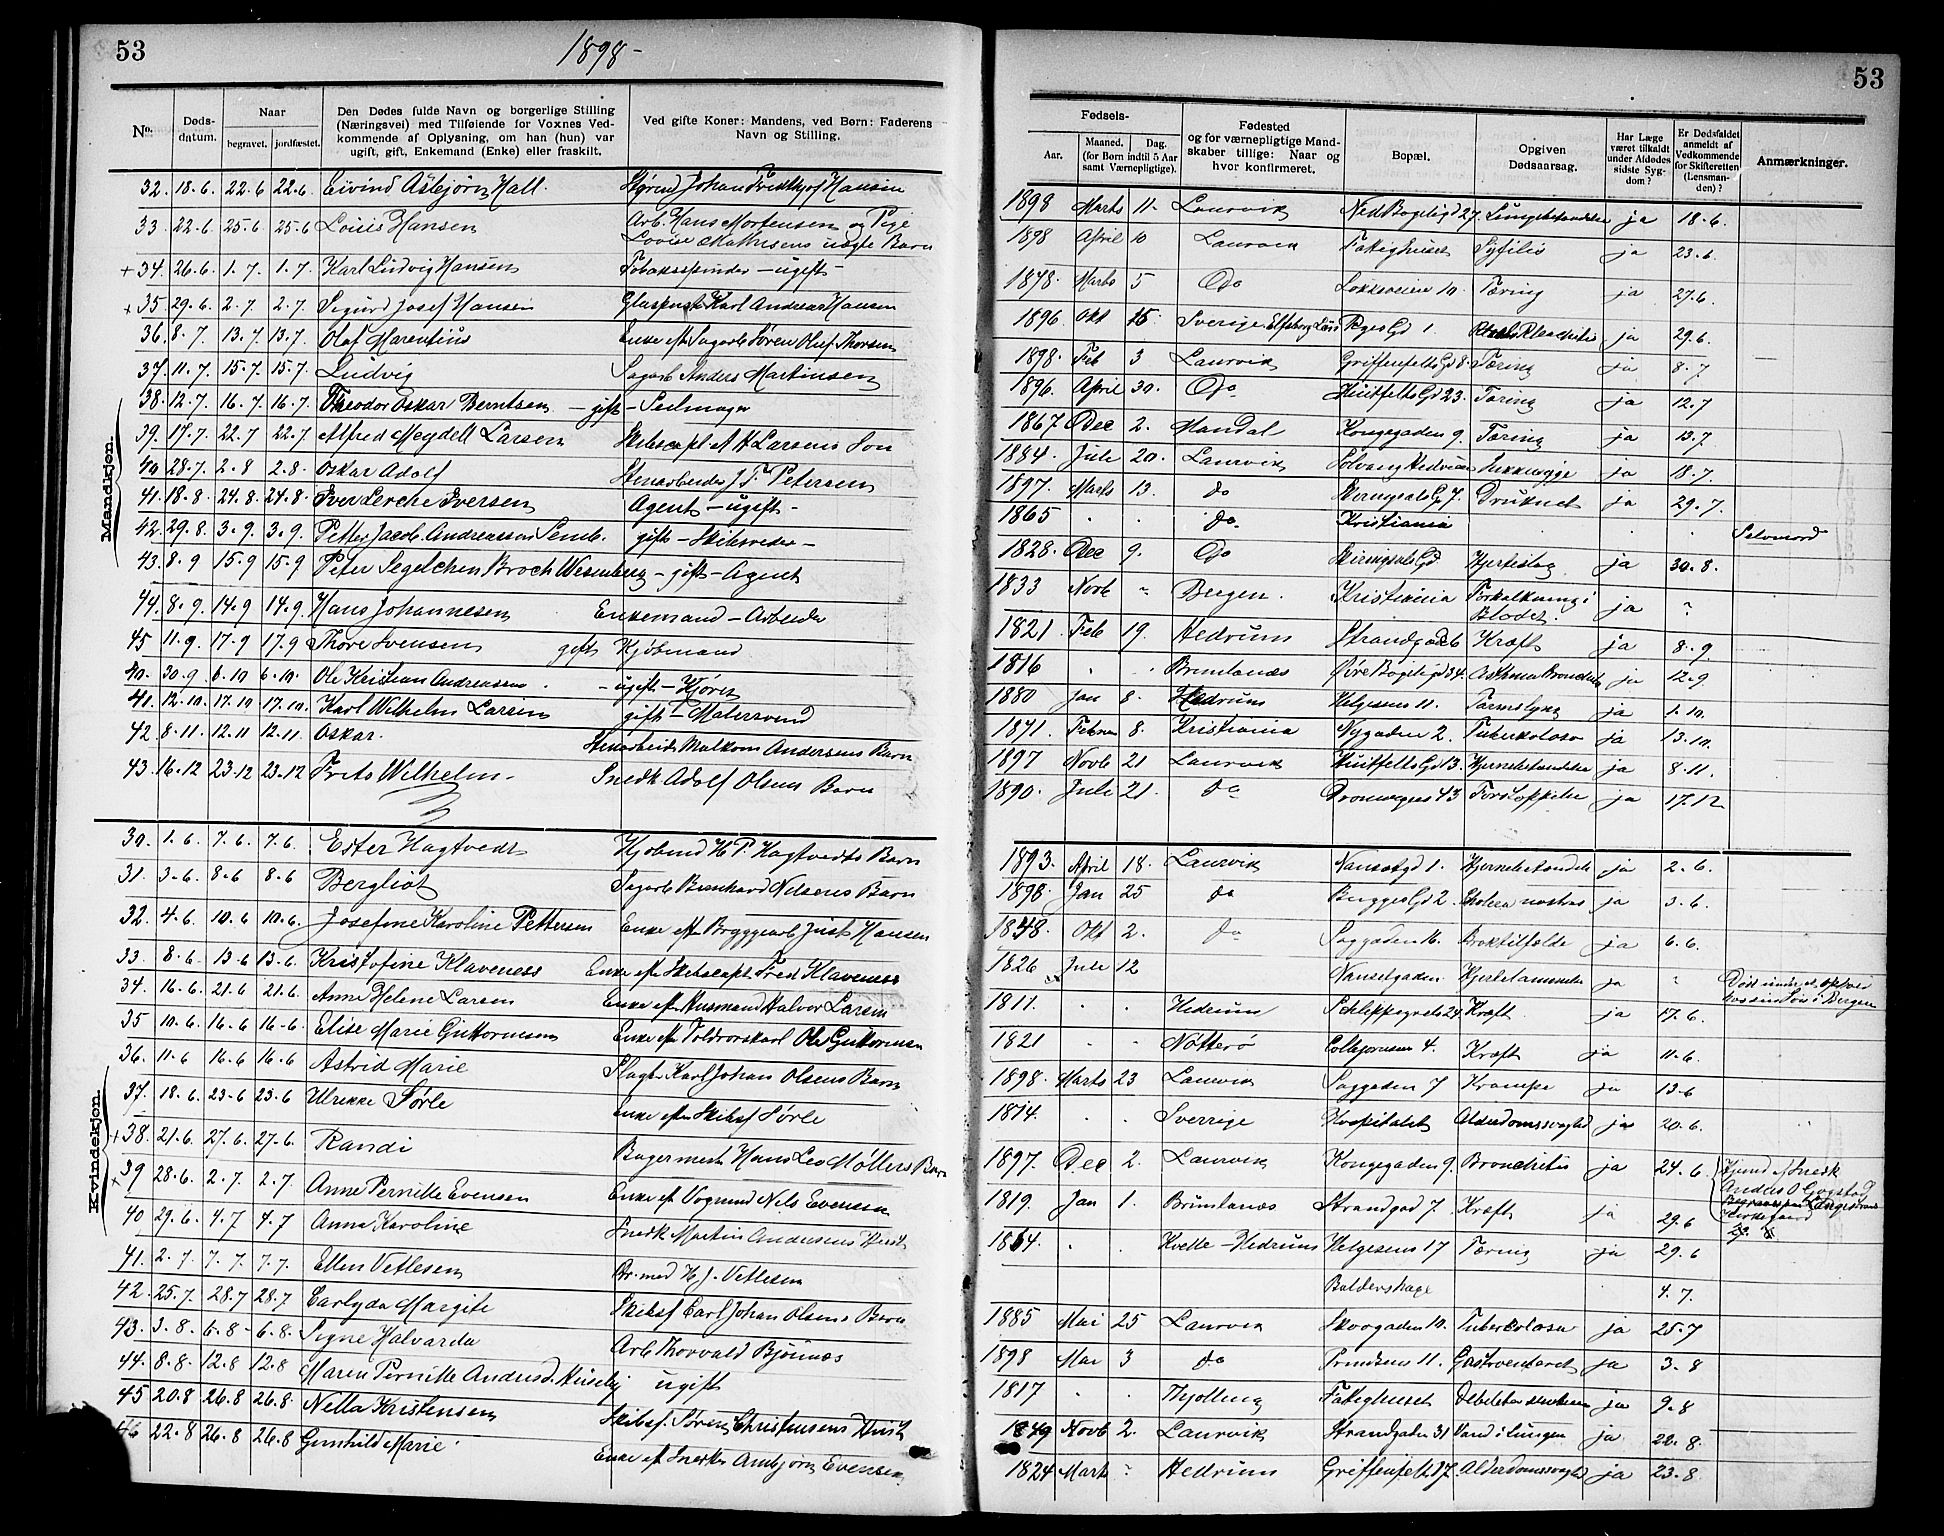 53
1898-
No.
Døds-
datum.
Naar
begravet.
jordfæstet.
Den Dødes fulde Navn og borgerlige Stilling
(Næringsvei) med Tilføiende for Voxnes Ved-
kommende af Oplysning, om han (hun) var
ugift, gift, Enkemand (Enke) eller fraskilt.
Ved gifte Koner: Mandens, ved Børn: Faderens
Navn og Stilling.
Mandkjøn.
32. 18.6. 22.6 22.6. Eivind Asbjørn Hall. Johan Fridthjof Hansen
33. 22.6. 25.6 25.6 Louis Hansen Arb. Hans Mortensen og Pige
Lovise Mathisens uægte Barn
+34. 26.6. 1.7. 1.7. Karl Ludvig Hansen Tobaksspinder - ugift -
+35 29.6. 2.7 2.7. Sigurd Josef Hansen Glaspust Karl Andreas Hansen
36. 8.7. 13.7. 13.7. Olaf Marentius Enke eft Sagarb Søren Oluf Thorsen
37. 11.7. 15.7. 15.7. Ludvig Sagarb Anders Martinsen
38. 12.7. 16.7. 16.7. Theodor Oskar Berntsen - gift - Seilmager
39. 17.7. 22.7 22.7. Alfred Meydell Larsen Skibscapt. A H Larsens Søn
40 28.7. 2.8 2.8. Oskar Adolf Stenarbeider J. F. Petersen
41. 18.8 24.8. 24.8. Iver Lerche Iversen Agent - ugift -
42. 29.8. 3.9. 3.9. Petter Jacob Andreassen Semb. gift - Skibsreder -
43. 8.9 15.9 15.9 Peter Segelchen Broch Wesenberg - gift - Agent
44. 8.9. 14.9 14.9. Hans Johannesen Enkemand - Arbeider
45 11.9. 17.9 17.9 Thore Svensen gift Kjøbmand
40. 30.9 6.10 6.10. Ole Kristian Andreassen. - ugift - Kjører
41. 12.10. 17.10 17.10. Karl Wilhelm Larsen gift - Malersvend
42. 8.11. 12.11 12.11. Oskar. Stenarbeid Malkom Andersens Barn
43. 16.12 23.12 23.12 Frits Wilhelm. Snedk Adolf Olsens Barn
Kvindekjøn.
30. 1.6. 7.6. 7.6. Ester Hagtvedt Kjøbmd H P. Hagtvedts Barn
31. 3.6. 8.6 8.6 Bergliot Sagarb Bernhard Nilsens Barn
32. 4.6. 10.6 10.6. Josefine Karoline Pettersen Enke eft Bryggearb Just Hansen
33. 8.6. 13.6 13.6. Kristofine Klaveness Enke eft Skibscapt Fred Klaveness
34. 16.6. 21.6 21.6. Anne Helene Larsen Enke eft Husmand Halvor Larsen
35 10.6. 16.6 16.6. Elise Marie Guttormsen Enke eft Toldrorskarl Ole Guttormsen
36. 11.6 16.6 16.6. Astrid Marie Slagter Karl Johan Olsens Barn
37. 18.6. 23.6 23.6 Ulrikke Sørle Enke efter Skibsf Sørle
+38. 21.6. 27.6. 27.6. Randi Bagermest Hans Leo Møllers Barn
+39 28.6. 2.7. 2.7 Anne Pernille Evensen Enke eft Vognmd Nils Evensen
40 29.6. 4.7 4.7 Anna Karoline Snedk Martin Andersens Hust
41. 2.7 7.7. 7.7. Ellen Vetlesen Br. med H. J. Vetlesen
42. 25.7. 28.7 28.7 Carlyda Margite Skibsf Carl Johan Olsens Barn
43. 3.8. 6.8 - 6.8. Signe Halvarda Arb Thorvald Bjønnes
44. 8.8. 12.8 12.8 Maren Pernille Andersd. Huseby ugift
45 20.8 26.8 26.8. Nella Kristensen Skibsf. Søren Christensens Hust
46 22.8 26.8 26.8 Gunhild Marie Enke eft Snedker Ambjørn Evensen
53
Fødsels-
Aar.
Maaned.
Dag.
(for Børn indtil 5 Aar
samt Værnepligtige).
Fødested
og for værnepligtige Mand-
skaber tillige: Naar og
hvor konfirmeret.
Bopæl.
Opgiven
Dødsaarsag.
Har Læge
været tilkaldt
under Afdødes
sidste Syg-
dom?
Er Dødsfaldet
anmeldt af
Vedkommende
for Skifteretten
(Lensman-
den)?
Anmærkninger.
1898 Marts 11. Laurvik Ned Bøgeligd 27. Lungebetændelse ja 18.6.
1898 April 10 Laurvik Fattighuset Syfilis ja 23.6.
1848. Marts 5 Do 10. Tæring ja 27.6.
1896. Okt 15 Sverige. Elfsborg Læn Peges Gd 1. ja 29.6.
1898. Feb 3 Laurvik Griffenfelts Gd 8. Tæring ja 8.7
1896. April 30. Do Huitfelts Gd 23. Tæring ja 12.7
1867 Dec 2. Mandal Kongegaden 9. Tæring ja 13.7
1884. Jule 20. Laurvik ja 18.7.
1897. Marts 13. do Skringsals Gd 7. Druknet ja 29.7.
1865 . . do. Kristiania . . Selvmord
1828. Dec 9. Do Skiringsals Gd Hjerteslag ja 30.8.
1833 Novb " Bergen. Kristiania Forkalkning i
Blodet. ja ?
1821. Feb 19. Hedrum Strandgad 6 Kræft ja 8.9.
1816 . . Brunlanæs Øvre Bøgeligd 34. Asthma Bronchit ja 12.9.
1880 Jan 8. Hedrum Helgesens 11. Tarmslyng ja 1.10.
1871. Febru 8. Kristiania Nygaden 2. Tuberkolose ja 13.10.
1897 Novb 21 Laurvik Huitfelts Gd 13. Hjernebetændelse ja 8.11.
1890. Jule 21. do Dronnigens 43 Forstoppelse ja 17.12
1893. April 18. Laurvik Nansetgd 1. Hjernebetændels ja 2.6.
1898. Jan 25 do Bugges Gd 2. Cholera nostras ja 3.6.
1848. Okt 2. do Saggaden 16. Broktilfælde ja 6.6.
1826 Jule 12 Nansetgaden. Hjertelammelse ja " Død under et ophold
hos sin Søn i Bergen
1811. . . Hedrum Schleppegrels 24. Kræft. ja 17.6.
1821 . . Nøtterø Collegiensen 4. Kræft ja 11.6.
1898. Marts 23 Laurvik Saggaden 7 Krampe ja 13.6
1814. . . Sverrige Hospitalet Alderdomssvaghed ja 20.6.
1897. Dec 2. Laurvik Kongegaden 9. Bronchitis ja 24.6.
1819. Jan 1. Brunlanæs Strandgad 7. Kræft ja 29.6
1864. . . Kvelle - Hedrum Helgesens 17 Tæring ja 29.6
Baldershage . 4.7.
1885 Mai 25 Laurvik Skovgaden 10. Tuberkolose ja 25.7
1898 Mai 3 do Prindsens 11. Gastroenterit ja 3.8
1817 . . Hjolling Fattighuset ja 9.8
1849 Novb 2. Laurvik Strandgaden 31 Vand i Lungen ja 22.8.
1824 Mart ? Hedrum Griffenfelts 17. Alderdomssvaghed ja 23.8